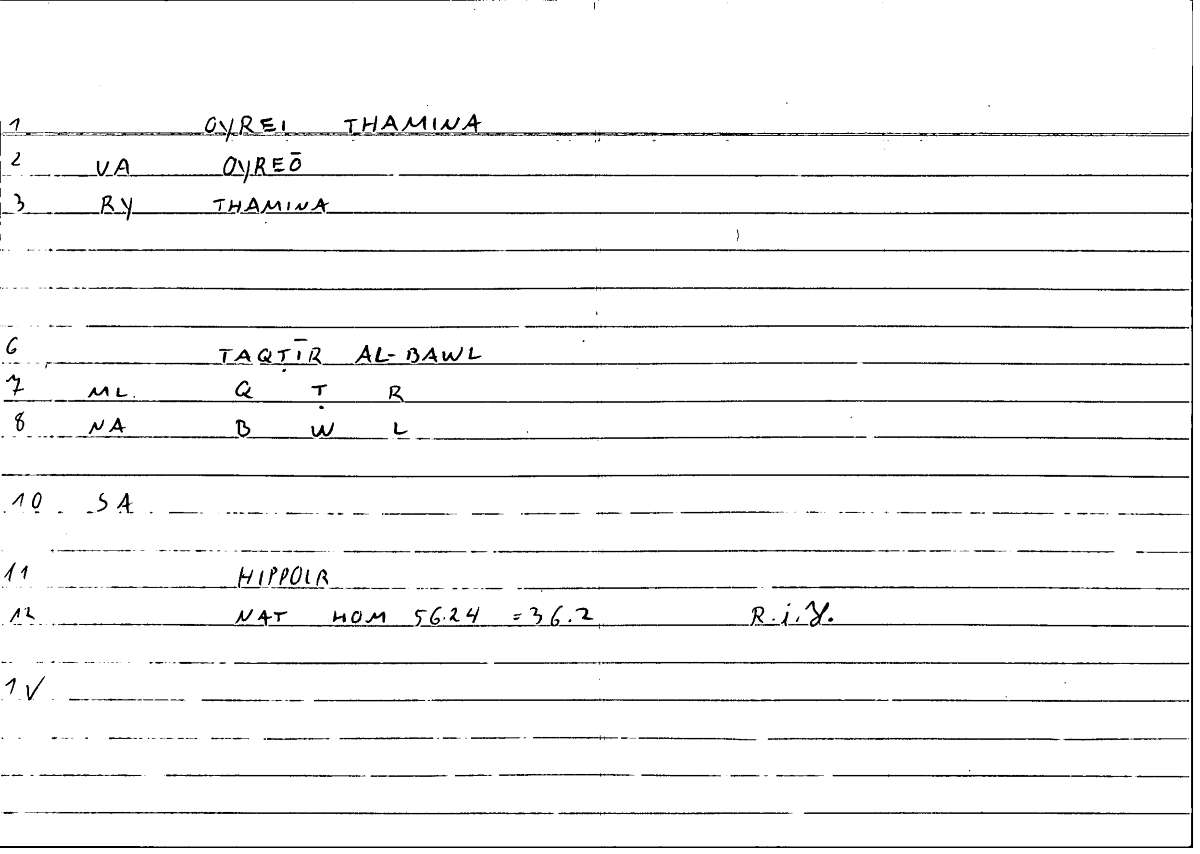 1 OYREI THAMINA
2 VA OYREŌ
3 RY THAMINA
6 TAQṬĪR AL-BAWL
7 ML. Q Ṭ R
8 NA B W L
10 SA
11 HIPPOLR
12 NAT HOM 56.24 = 36.2 R.i.Y.
1V